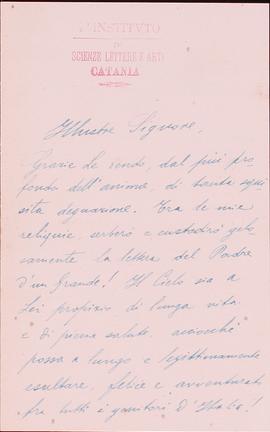 L'INSTITVTO
DI
SCIENZE LETTERE E ARTI
CATANIA
Illustre Signore,
Grazie Le rendo, dal più pro
fondo dell'animo, di tanta squi
sita degnazione. Tra le mie
reliquie, serberò e custodirò gelo
samente la lettera del Padre
d'un Grande! Il Cielo sia a
Lei propizio di lunga vita
e di piena salute, acciocché
possa a lungo e legittimamente
esultare, felice e avventurato
fra tutti i genitori d'Italia!